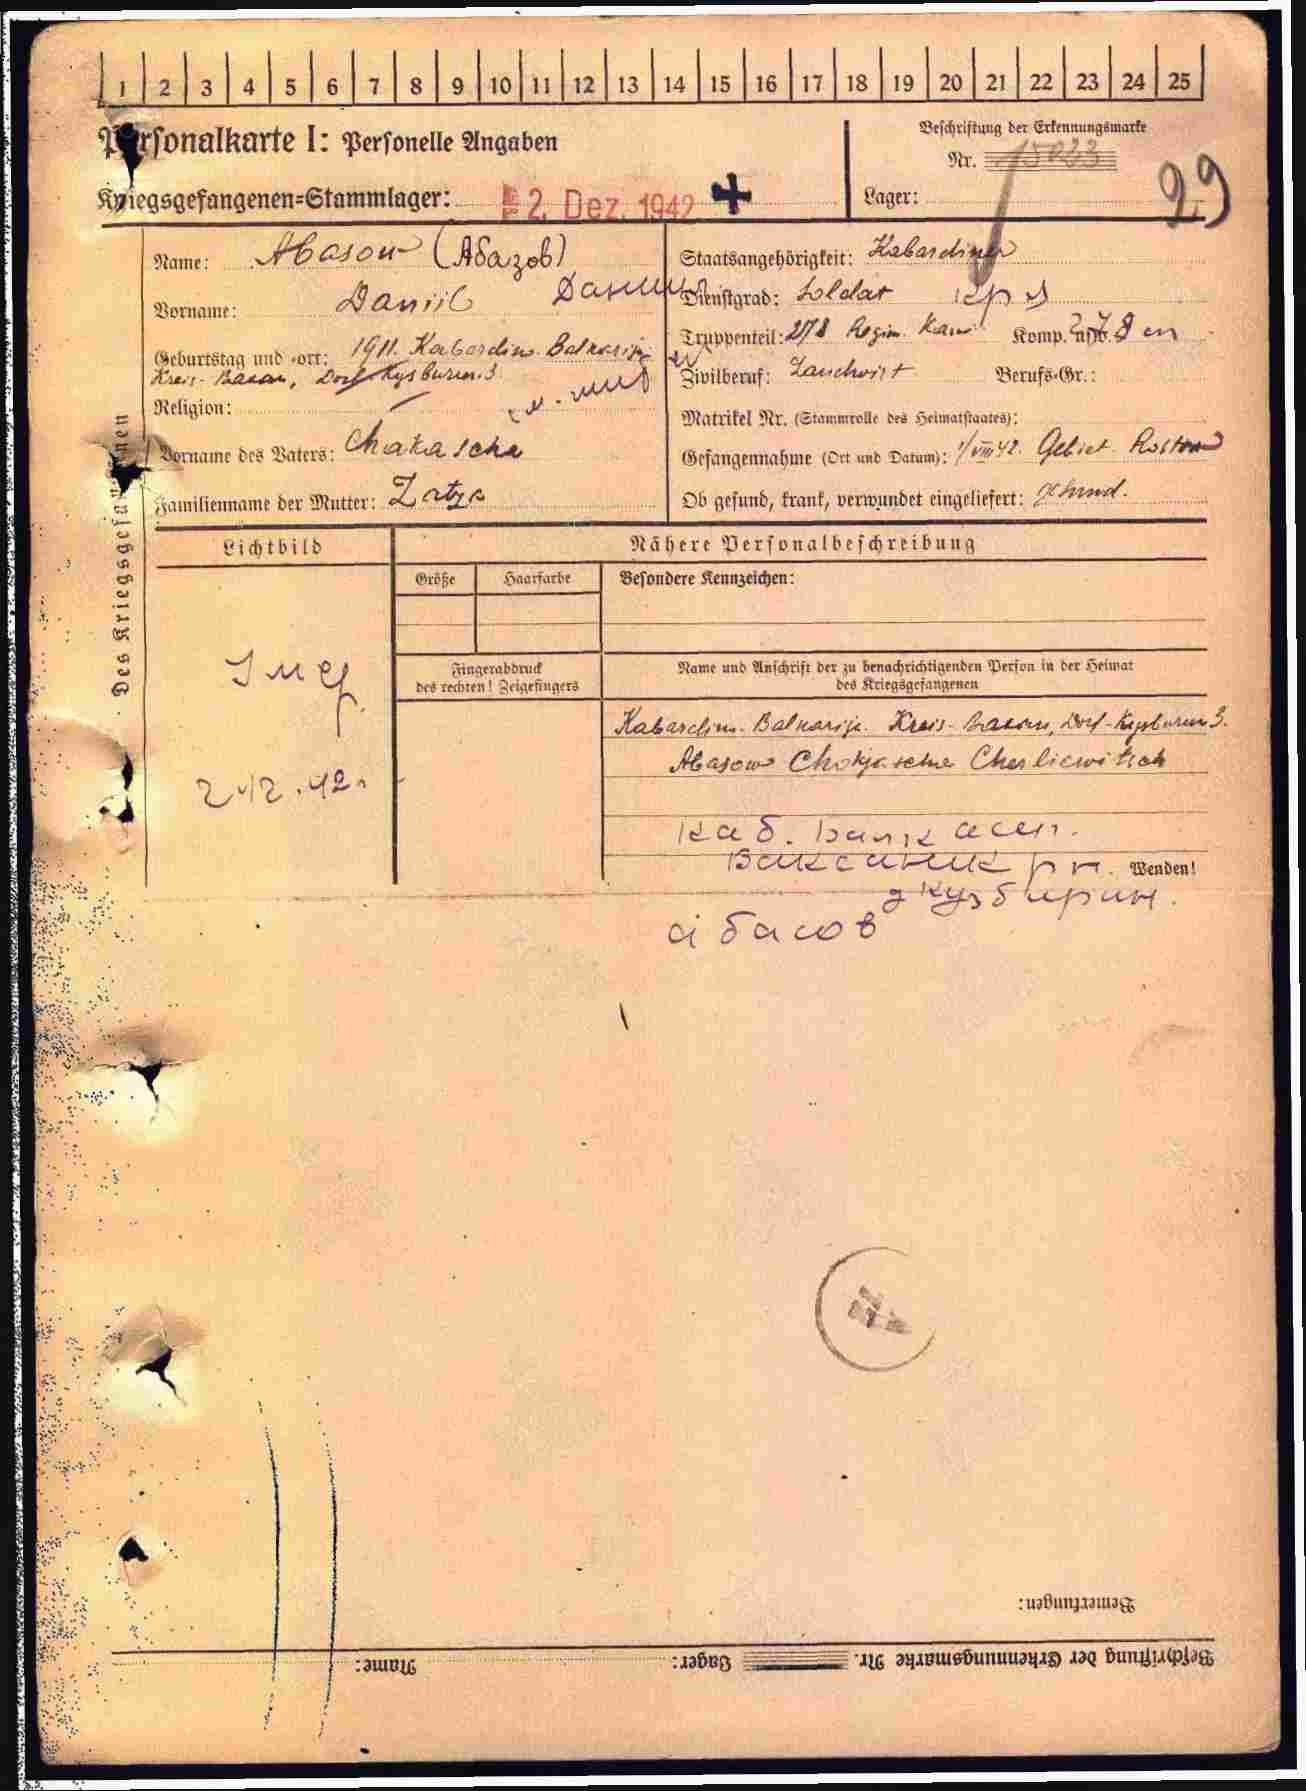 1 2 3 4 5 6 7 8 9 10 11 12 13 14 15 16 17 18 19 20 21 22 23 24 25
Personalkarte I: Personelle Angaben
Kriegsgefangenen=Stammlager: 2. Dez. 1942
Beschriftung der Erkennungsmarke
Nr. 15023
Lager:
99
Des Kriegsgefangenen
Name: Abasow (Абазов)
Vorname: Daniil Данил
Geburtstag und =ort: 1911. Kabardino-Balkarija
Kreis-Baxan, Dorf-Kysburun 3.
Religion:
Vorname des Vaters: Chakascha
Familienname der Mutter:
Staatsangehörigkeit: Kabardiner
Dienstgrad: Soldat кр
Truppenteil: 278 Regim. Kaw. Komp. usw.
Zivilberuf: Landwirt Berufs=Gr.:
Matrikel Nr. (Stammrolle des Heimatstaates):
Gefangennahme (Ort und Datum): 1/VIII 42. Gebiet Rostow
Ob gesund, krank, verwundet eingeliefert: gesund.
Lichtbild
Умер
2 12.42г
Nähere Personalbeschreibung
Größe Haarfarbe Besondere Kennzeichen:
Fingerabdruck
des rechten! Zeigefingers
Name und Anschrift der zu benachrichtigenden Person in der Heimat
des Kriegsgefangenen
Kabardino-Balkarija Kreis-Baxan, Dorf-Kysburun 3.
Abasow Chokjascha
каб. Балк
Баксанск рн.
Wenden!
д кузбурун.
абасов
Bemerkungen:
Beschriftung der Erkennungsmarke Nr. Lager: Name: